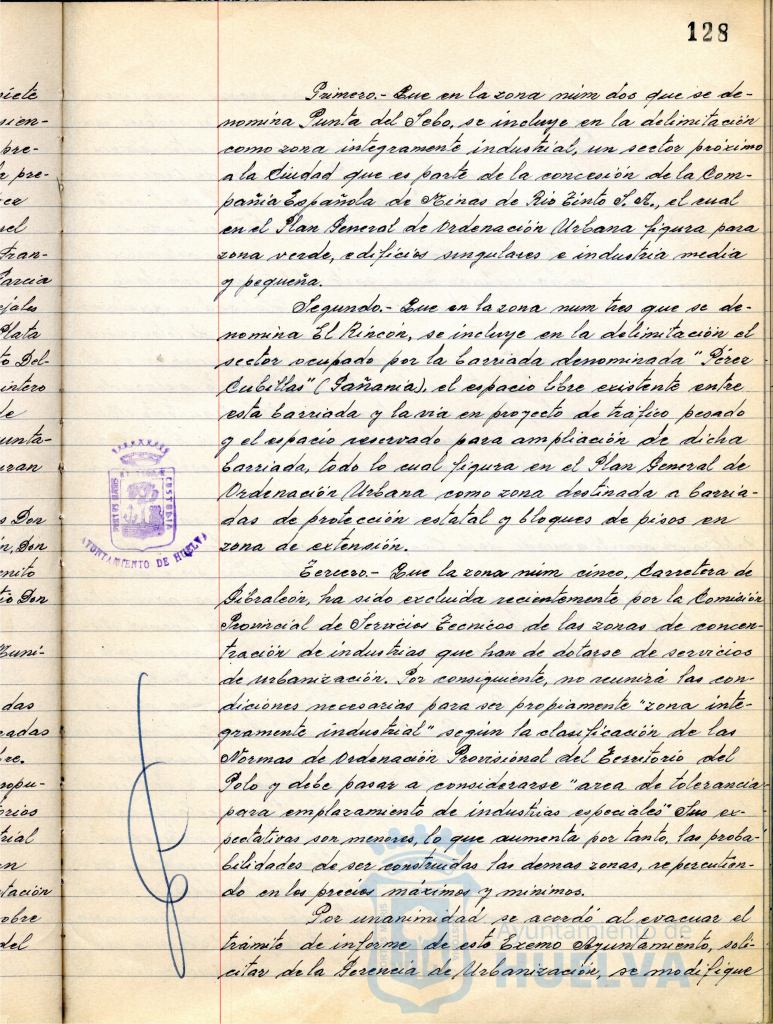 128
Primero.- Que en la zona núm dos que se de-
nomina Punta del Sebo, se incluye en la delimitación
como zona integramente industrial, un sector próximo
a la Ciudad que es parte de la concesión de la Com-
pañia Española de Minas de Rio Tinto S.A., el cual
en el Plan General de Ordenación Urbana figura para
zona verde, edificios singulares e industria media
y pequeña.
Segundo.- Que en la zona num tres que se de-
nomina El Rincón, se incluye en la delimitación el
sector ocupado por la barriada denominada "Pérez
Cubillas" (Gañania), el espacio libre existente entre
esta barriada y la via en proyecto de tráfico pesado
y el espacio reservado para ampliación de dicha
barriada, todo lo cual figura en el Plan General de
Ordenación Urbana como zona destinada a barria-
das de protección estatal y bloques de pisos en
zona de extensión.
Tercero.- Que la zona núm cinco, Carretera de
Gibraleón, ha sido excluida recientemente por la Comisión
Provincial de Servicios Tecnicos de las zonas de concen-
tración de industrias que han de dotarse de servicios
de urbanización. Por consiguiente, no reunirá las con-
diciones necesarias para ser propiamente "zona inte-
gramente industrial" según la clasificación de las
Normas de Ordenación Provisional del Territorio del
Polo y debe pasar a considerarse "area de tolerancia
para emplazamiento de industrias especiales" Sus ex-
pectativas son menores, lo que aumenta por tanto, las proba-
bilidades de ser construidas las demas zonas, repercutien-
do en los precios máximos y minimos.
Por unanimidad se acordó al evacuar el
trámite de informe de este Excmo Ayuntamiento, soli-
citar de la Gerencia de Urbanización, se modifique
AYUNTAMIENTO DE HUELVA
Ayuntamiento de
HUELVA